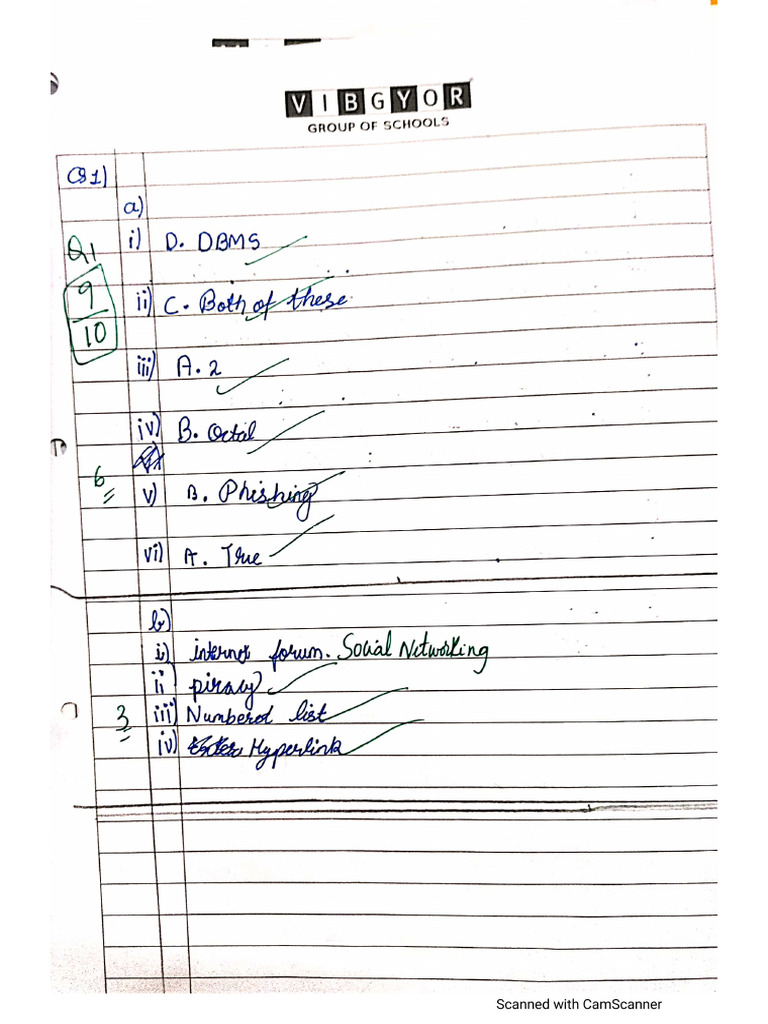 VIBGYOR
GROUP OF SCHOOLS
Q1)
a)
i) D. DBMS
Q1
9
10
ii) C. Both of these
iii) A. 2
iv) B. Octal
6
v) B. Phishing
vi) A. True
b)
i) internet forum. Social Networking
ii piracy
3 iii) Numbered list
iv) Hyperlink
Scanned with CamScanner